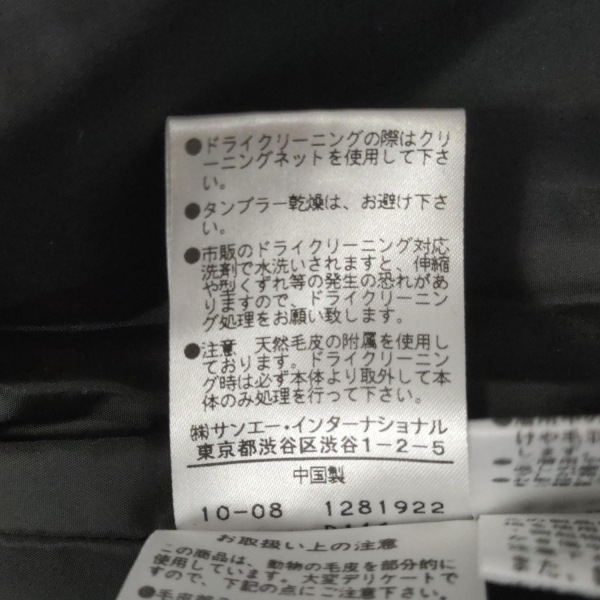 ●ドライクリーニングの際はクリ
ーニングネットを使用して下さ
い。
●タンブラー乾燥は、お避け下さ
い。
●市販のドライクリーニング対応
洗剤で水洗いされますと、伸縮
や型くずれ等の発生の恐れがあ
りますので、ドライクリーニン
グ処理をお願い致します。
●注意　天然毛皮の附属を使用し
ております。ドライクリーニン
グ時は必ず本体より取外して本
体のみ処理を行って下さい。
㈱サンエー・インターナショナル
東京都渋谷区渋谷1-2-5
中国製
10-08 1281922
お取扱い上の注意
この商品は、動物の毛皮を部分的に
使用しています。大変デリケートで
すので、下記の点にご注意下さい。
けや毛羽
します。